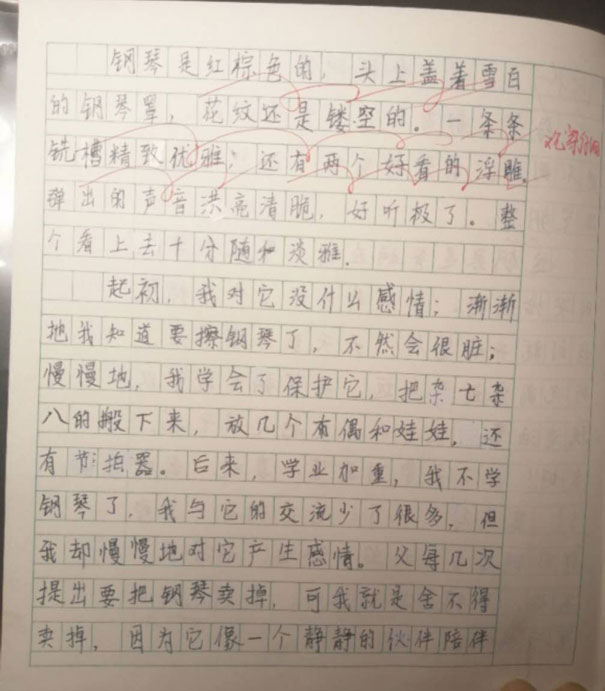 钢琴是红棕色的，头上盖着雪白
的钢琴罩，花纹还是镂空的。一条条
铣槽精致优雅；还有两个好看的浮雕。
弹出的声音洪亮清脆，好听极了。整
个看上去十分随和淡雅．
起初，我对它没什么感情；渐渐
地我知道要擦钢琴了，不然会很脏；
慢慢地，我学会了保护它，把杂七杂
八的搬下来，放几个布偶和娃娃，还
有节拍器。后来，学业加重，我不学
钢琴了，我与它的交流少了很多，但
我却慢慢地对它产生感情。父母几次
提出要把钢琴卖掉，可我就是舍不得
卖掉，因为它像一个静静的伙伴陪伴